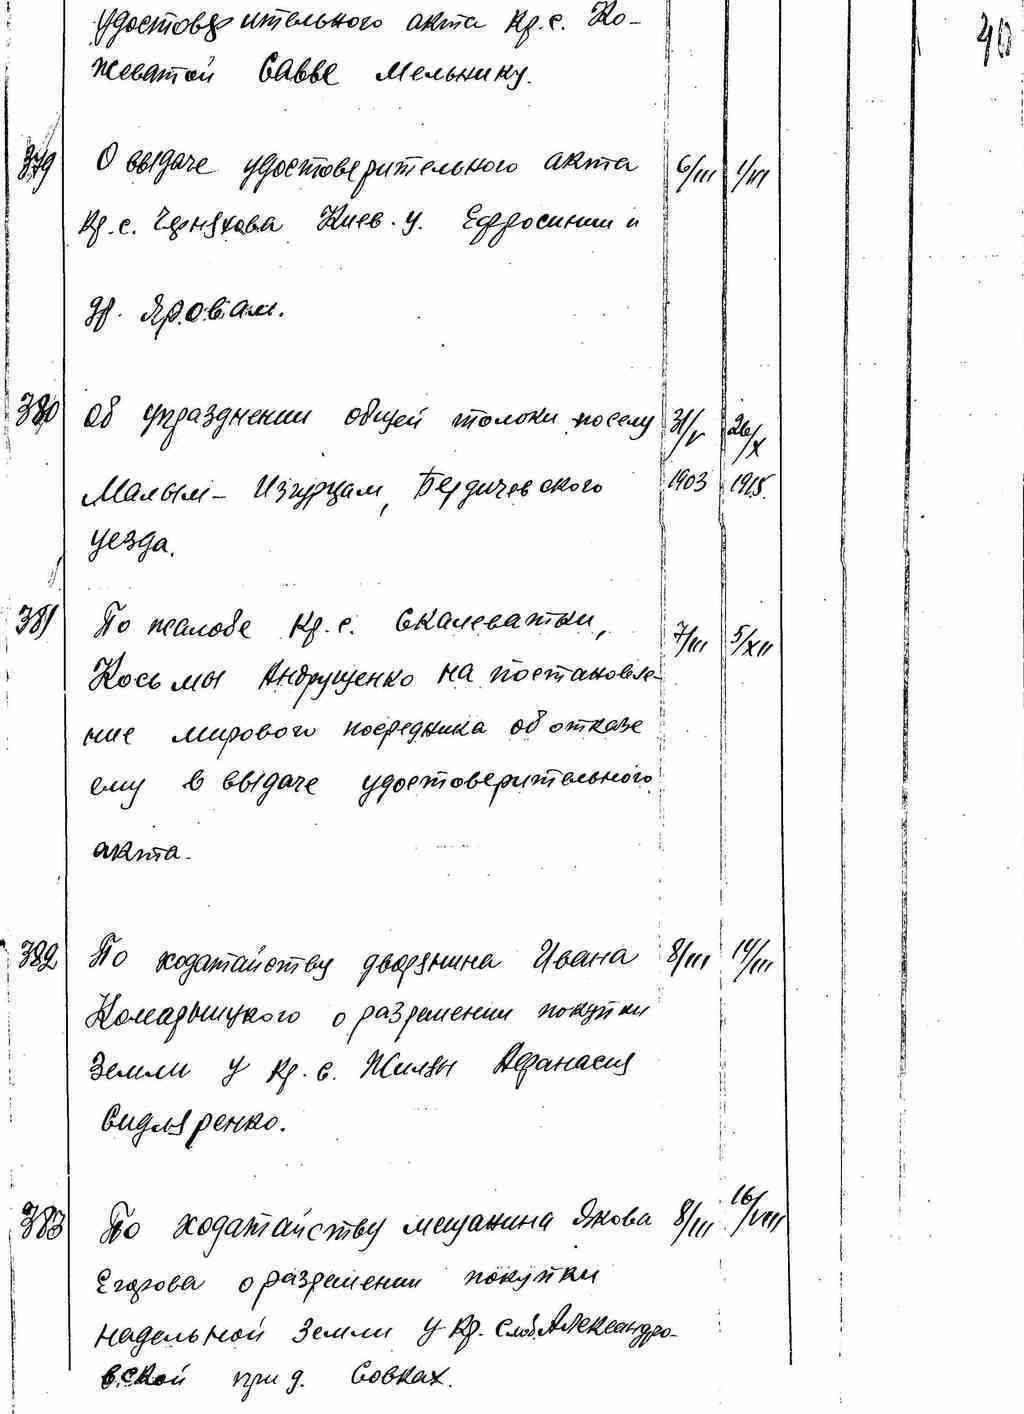 удостоверительного акта кр. с. Ко-
жеватой Савве Мельнику.
40
379 О выдаче удостоверительного акта 6/III 1/VI
кр. с. Черняхова Киев. у. Ефросинии и
др. Яровам.
380 Об упразднении общей толоки по селу 31/V 26/X
Малым-Изгурцам, Бердичевского 1903 1915.
уезда.
381 По жалобе кр. с. Скалеватки, 7/III 5/XII
Косьмы Андрущенко на постановле-
ние мирового посредника об отказе
ему в выдаче удостоверительного
акта.
382 По ходатайству дворянина Ивана 8/III 14/III
Комарницкого о разрешении покупки
земли у кр. с. Жилян Афанасия
Сидляренко.
383 По ходатайству мещанина Якова 8/III 16/VIII
Егорова о разрешении покупки
надельной земли у кр. слоб. Александро-
вской при д. Совках.